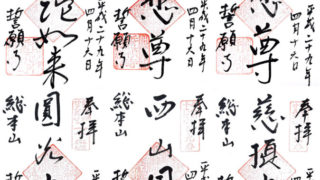 平成二十九年
四月十六日
悲尊
誓願寺
平成二十九年
四月十六日
悲尊
誓願寺
平成二十九年
四月十六日
陀如来
誓願寺
奉拝
総本山
奉拝
西山
総本山
奉拝
圓光
総本山